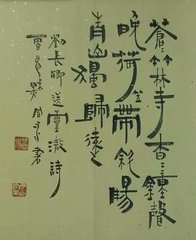 蒼〻竹林寺杳〻鐘聲
晚荷笠帶斜陽
青山獨歸遠
劉長卿送靈澈詩
書